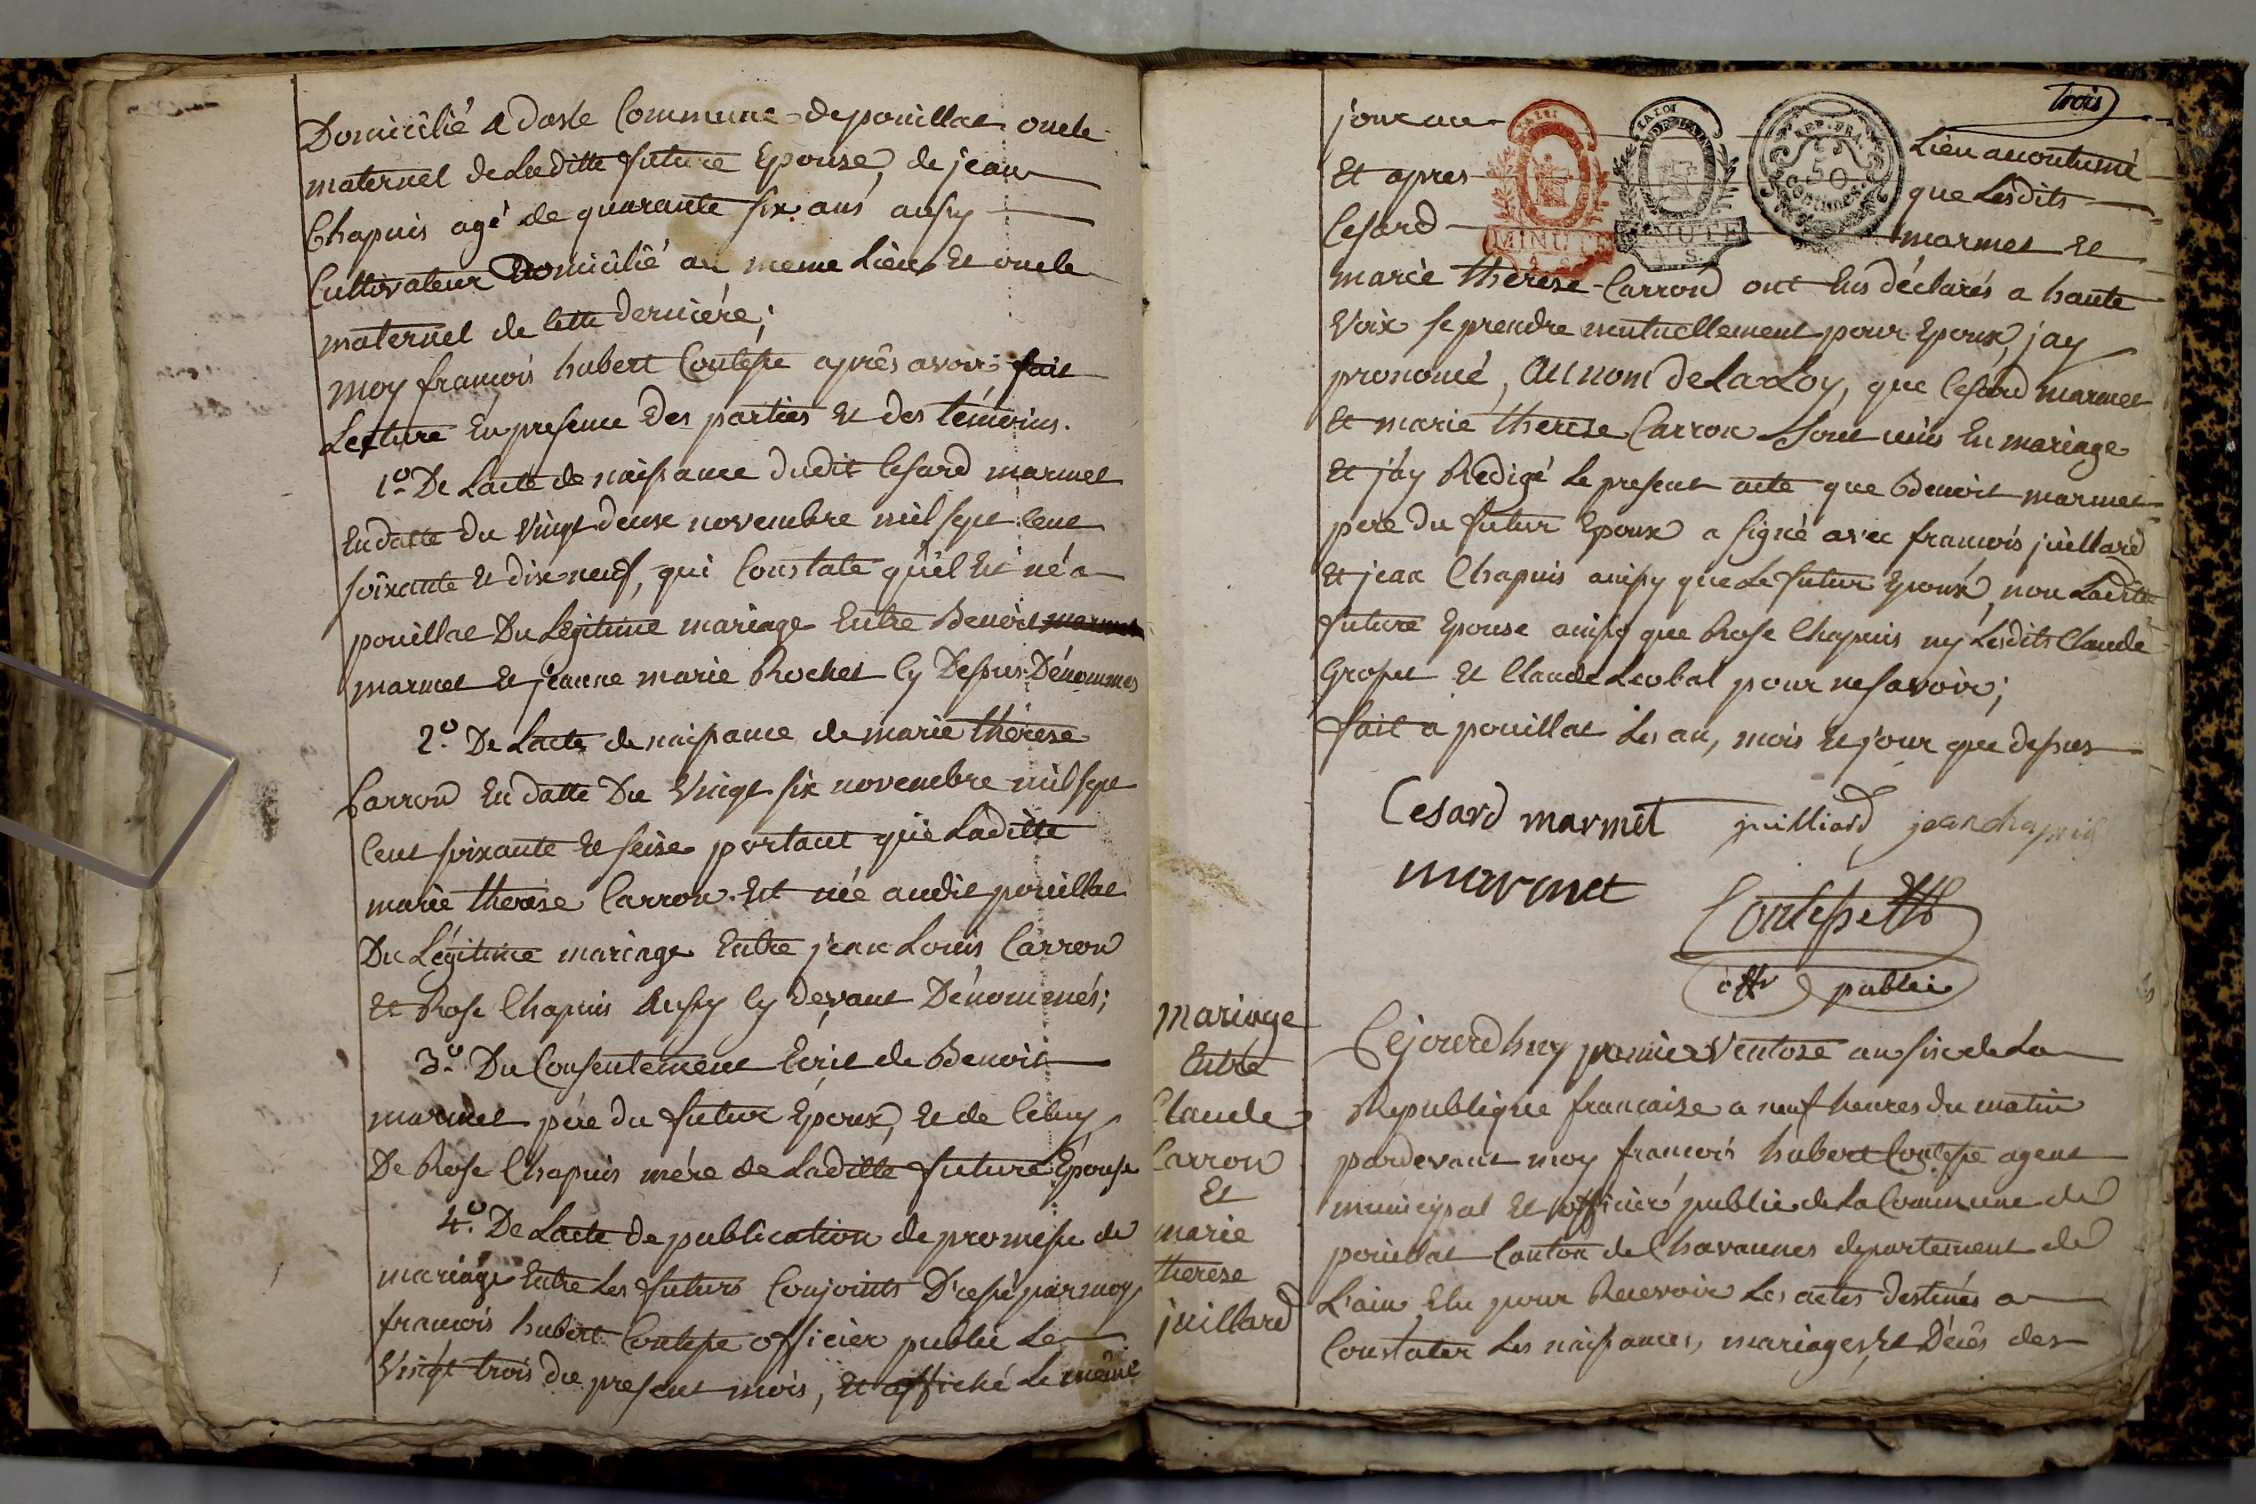 Domicilié a dasle Commune de pouillat oncle
maternel de Laditte future Epouse, de jean
Chapuis agé de quarante six ans aussy
Cultivateur Domicilié au meme Lieu et oncle
maternel de Cette derniére;
moy francois hubert Contepe aprês avoir fait
Lecture En presence Des parties et des témoins.
1.º De Lacte de naissance dudit Cesard marmet
En datte du Vingt deux novembre mil sept Cent
soixante et dix neuf, qui Constate qu'il Est né a
pouillat Du Légitime mariage Entre Benoit
marmet et jeanne marie Rochet Cy Dessus Dénommés
2.º De Lacte de naissance de marie thérese
Carron En datte Du Vingt six novembre mil sept
Cent soixante et seise portant que Laditte
marie therese Carron Est née audit pouillat
Du Légitime mariage Entre jean Louis Carron
et Rose Chapuis Aussy Cy devant Dénommés;
3.º Du Consentement Ecrit de Benoit
marmet pére du futur Epoux, et de Celuy
De Rose Chapuis mére de Laditte future Epouse
4.º De Lacte de publication de promesse de
mariage Entre Les futurs Conjoints Dressé par moy
francois hubert Contepe officier public Le
Vingt trois du present mois, et affiché Le même
trois
jour au Lieu acoutumé
Et apres que Lesdits
Cesard marmet et
LA LOI
MINUTE
A. S.
LA LOI
MINUTE
A. S.
REP. FRA.
50
Centimes
marie therese Carron ont Eus déclarés a haute
Voix se prendre mutuellement pour Epoux, jay
prononcé, Au nom de La Loy, que Cesard marmet
Et marie therese Carron Sont unis En mariage
Et j'ay Rédigé Le present acte que Benoit marmet
pére du futur Epoux a signé avec francois juillard
Et jean Chapuis ainsy que Le futur Epoux, non Laditte
future Epouse ainsy que Rose Chapuis ny Lesdits Claude
Grospet et Claude Leobal pour ne savoir;
fait a pouillat Les an, mois et jour que dessus
Cesard marmet juilliard jean chapuis
marmet
offr public
mariage
Entre
Claude
Carron
Et
marie
therese
juillard
Cejourdhuy premier Ventose an six de La
Republique francaise a neuf heures du matin
pardevant moy francois hubert Contepe agent
municipal Et officier public de La Commune de
pouillat Canton de Chavannes departement de
L'ain, Elu pour Recevoir Les actes destinés a
Constater Les naissances, mariages, Et Décés des